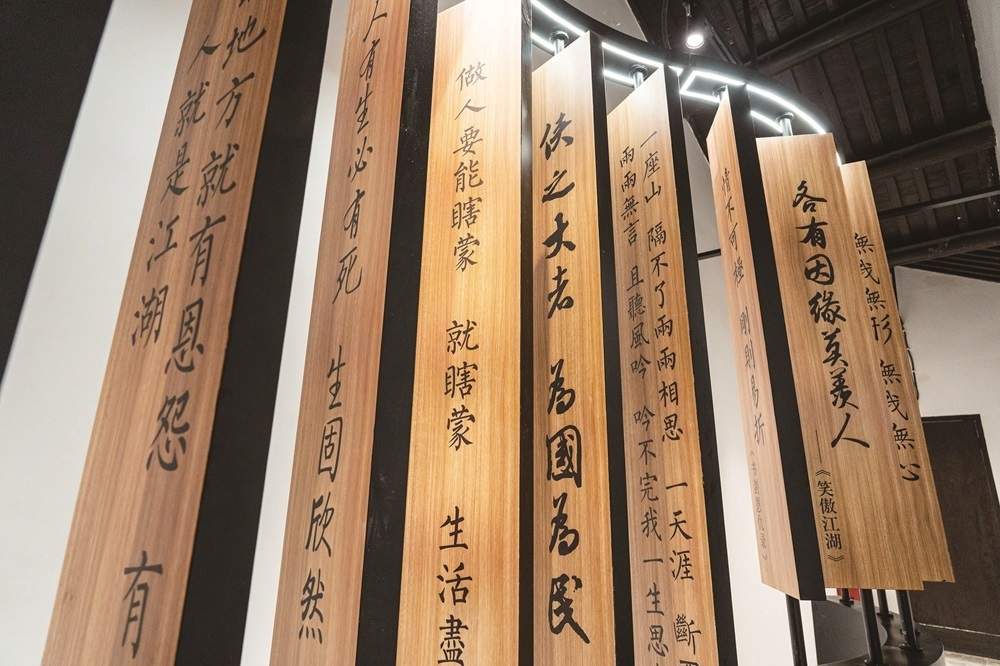 地方就有恩怨 有
人就是江湖
人有生必有死 生固欣然
做人要能瞎蒙 就瞎蒙 生活盡
侠之大者 為國為民
一座山 隔不了兩兩相思 一天涯 斷
兩兩無言 且聽風吟 吟不完我一生思
情不可極 剛則易折
各有因緣莫羨人
——《笑傲江湖》
無我無形 無我無心